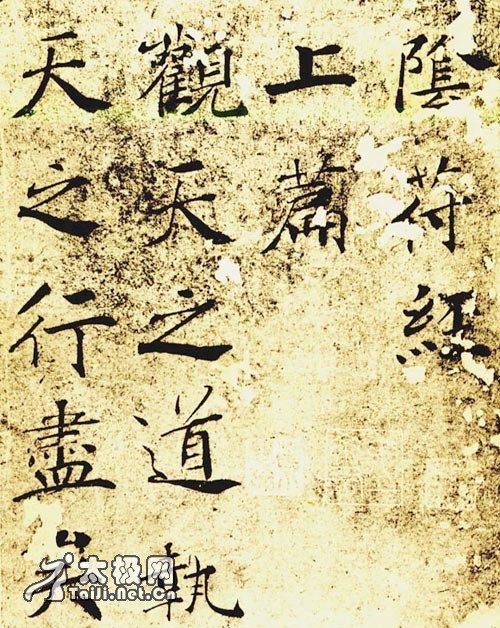 陰符經
上篇
觀天之道執
天之行盡矣
太极网
Taiji.Net.Cn